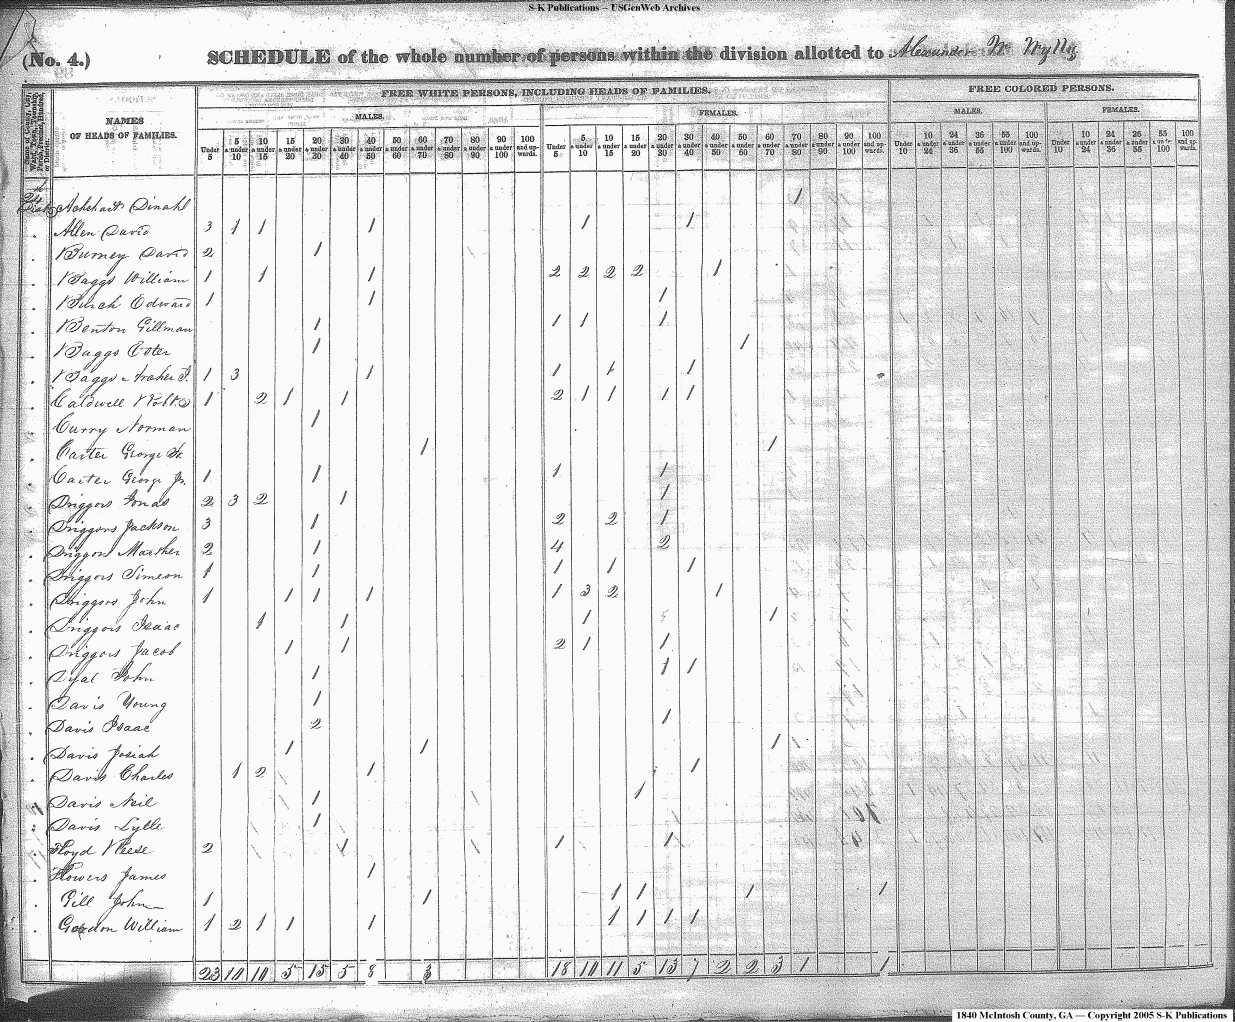 S-K Publications – USGenWeb Archives
(No. 4.) SCHEDULE of the whole number of persons within the division allotted to Alexander W Wylly
FREE WHITE PERSONS, INCLUDING HEADS OF FAMILIES. FREE COLORED PERSONS.
NAMES OF HEADS OF FAMILIES.
MALES. FEMALES. MALES. FEMALES.
Under 5 5 & under 10 10 & under 15 15 & under 20 20 & under 30 30 & under 40 40 & under 50 50 & under 60 60 & under 70 70 & under 80 80 & under 90 90 & under 100 100 and upwards. Under 5 5 & under 10 10 & under 15 15 & under 20 20 & under 30 30 & under 40 40 & under 50 50 & under 60 60 & under 70 70 & under 80 80 & under 90 90 & under 100 100 and upwards. Under 10 10 & under 24 24 & under 36 36 & under 55 55 & under 100 100 and upwards. Under 10 10 & under 24 24 & under 36 36 & under 55 55 & under 100 100 and upwards.
Dinah 1
Allen David 3 1 1 1 1 1
Burney David 2 1
Baggs William 1 1 1 2 2 2 2 1
Burch Edward 1 1 1
Benton Gillman 1 1 1 1
Baggs Ester 1 1
Baggs 1 3 1 1 1 1
Caldwell Robt 1 2 1 1 2 1 1 1 1
Curry Norman 1
Carter George Sr. 1 1
Carter George Jr. 1 1 1 1
Driggors Jonas 2 3 2 1 1
Driggors Jackson 3 1 2 2 1
Driggors Marther 2 1 4 2
Driggors Simeon 1 1 1 1 1
Driggors John 1 1 1 1 1 3 2 1
Driggors Isaac 1 1 1 1
Driggors Jacob 1 1 2 1 1
Dyal John 1 1 1
Davis Young 1
Davis Isaac 2 1
Davis Josiah 1 1 1 1
Davis Charles 1 2 1 1
Davis Neil 1 1
Davis Lytle 1
Floyd Reese 2 1 1 1
Flowers James 1
Gill John 1 1 1 1 1 1
Gordon William 1 2 1 1 1 1 1 1 1
23 10 10 5 15 5 8 3 18 10 11 5 13 7 2 2 3 1 1
1840 McIntosh County, GA — Copyright 2005 S-K Publications